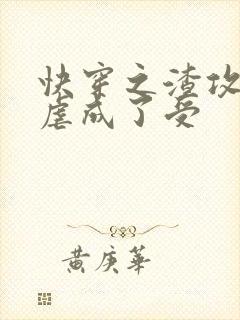 快穿之渣攻
虐成了受
黄庚华